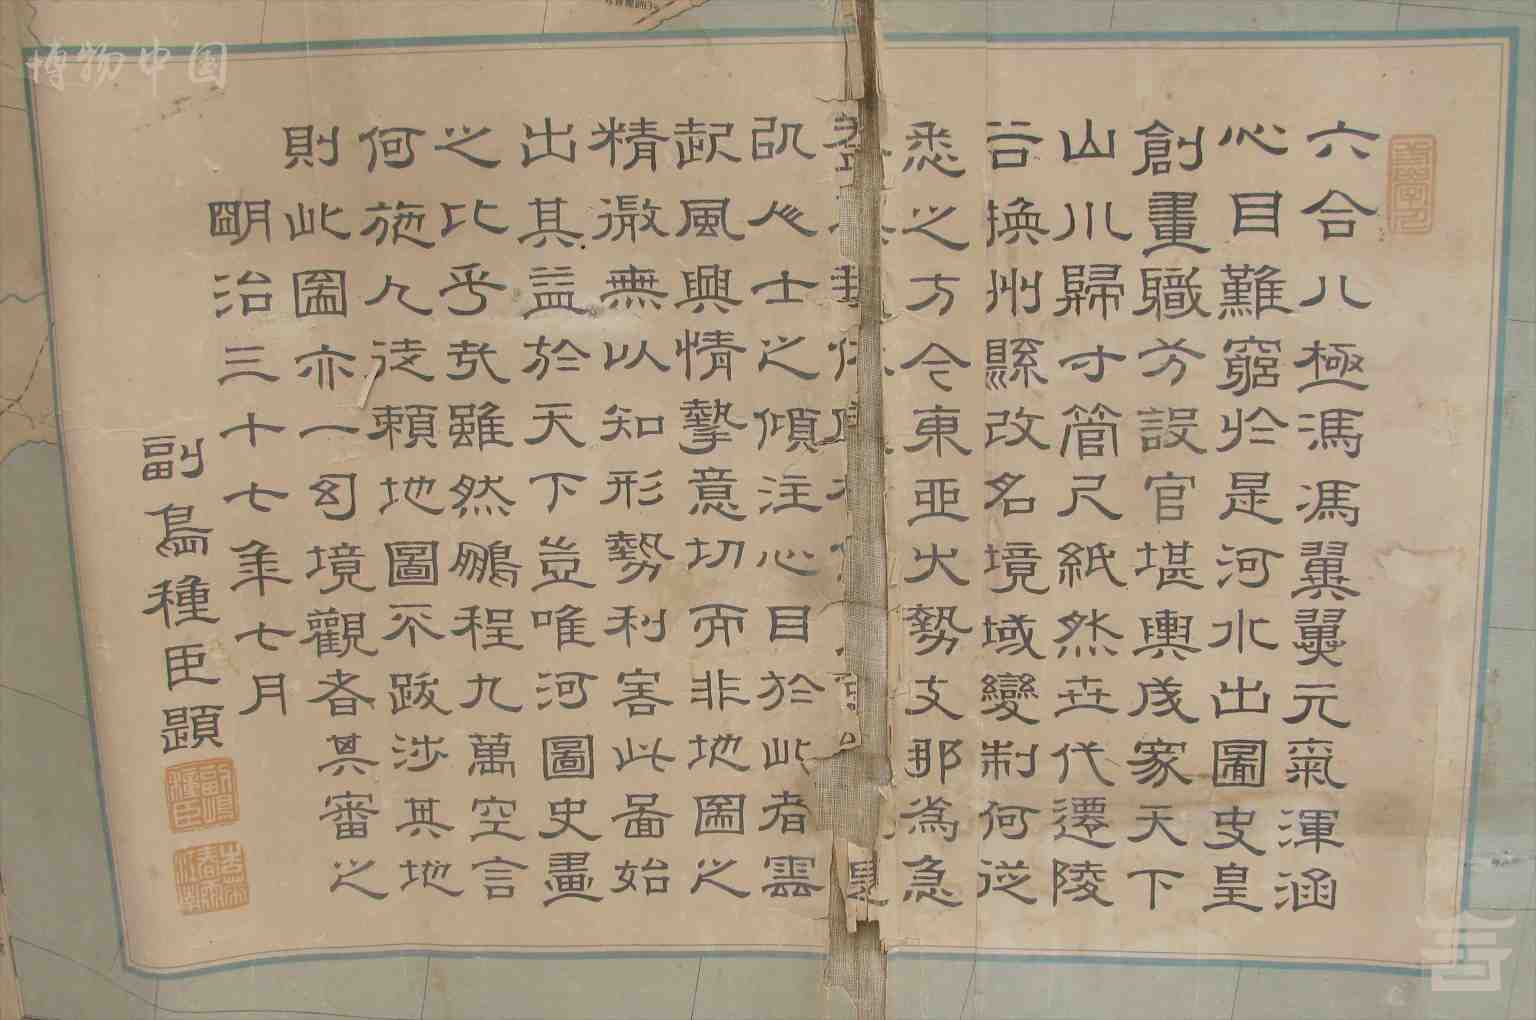 六合八極馮馮翼翼元氣渾涵
心目難窮於是河水出圖史皇
創畫職方設官堪輿成家天下
山川歸寸管尺紙然世代遷陵
谷換州縣改名境域變制何從
悉之方今東亞大勢支那為急
凯人士之傾注心目於此者雲
起風興情摯意切而非地圖之
精微無以知形勢利害此圖始
出其益於天下豈唯河圖史畫
之比乎哉雖然鵬程九萬空言
何施人徒賴地圖不跋涉其地
則此圖亦一幻境觀者其審之
明治三十七年七月
副島種臣題
副島種臣
博物中国